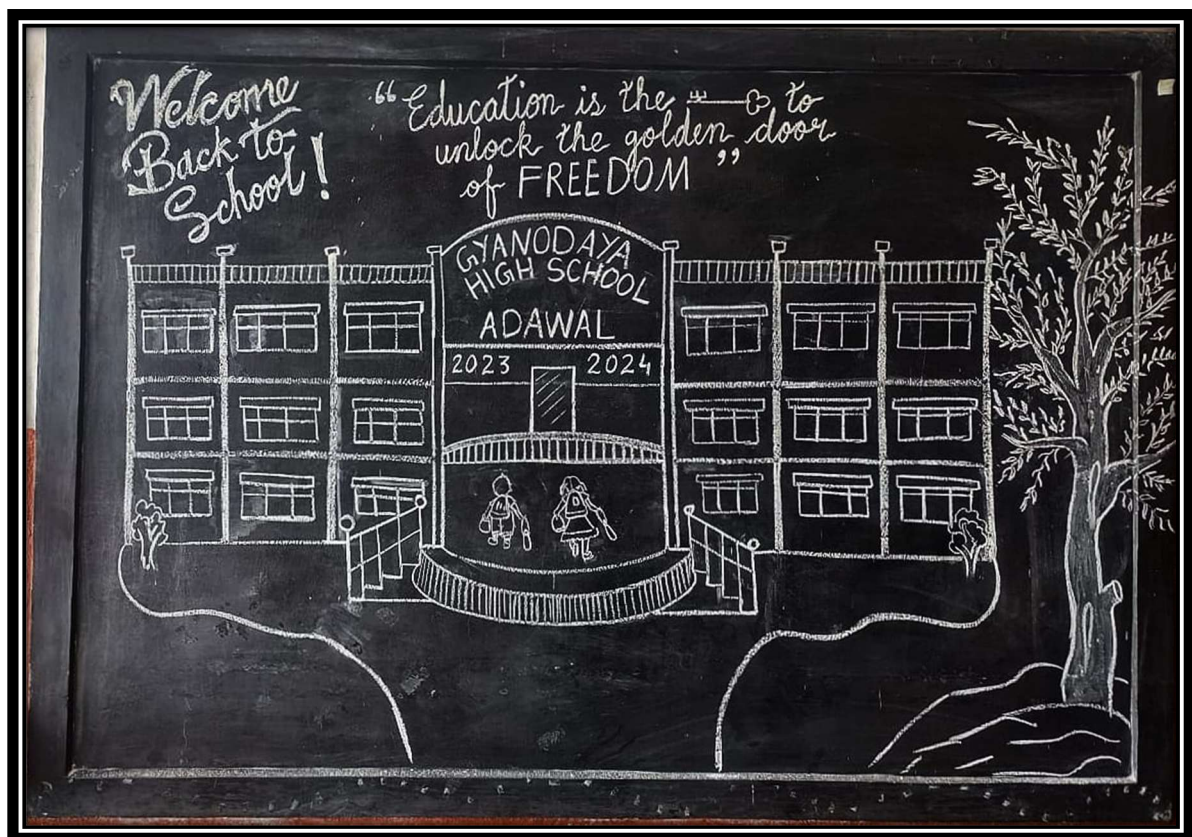 Welcome
Back to
School!
“Education is the to
unlock the golden door
of FREEDOM”
GYANODAYA
HIGH SCHOOL
ADAWAL
2023 2024